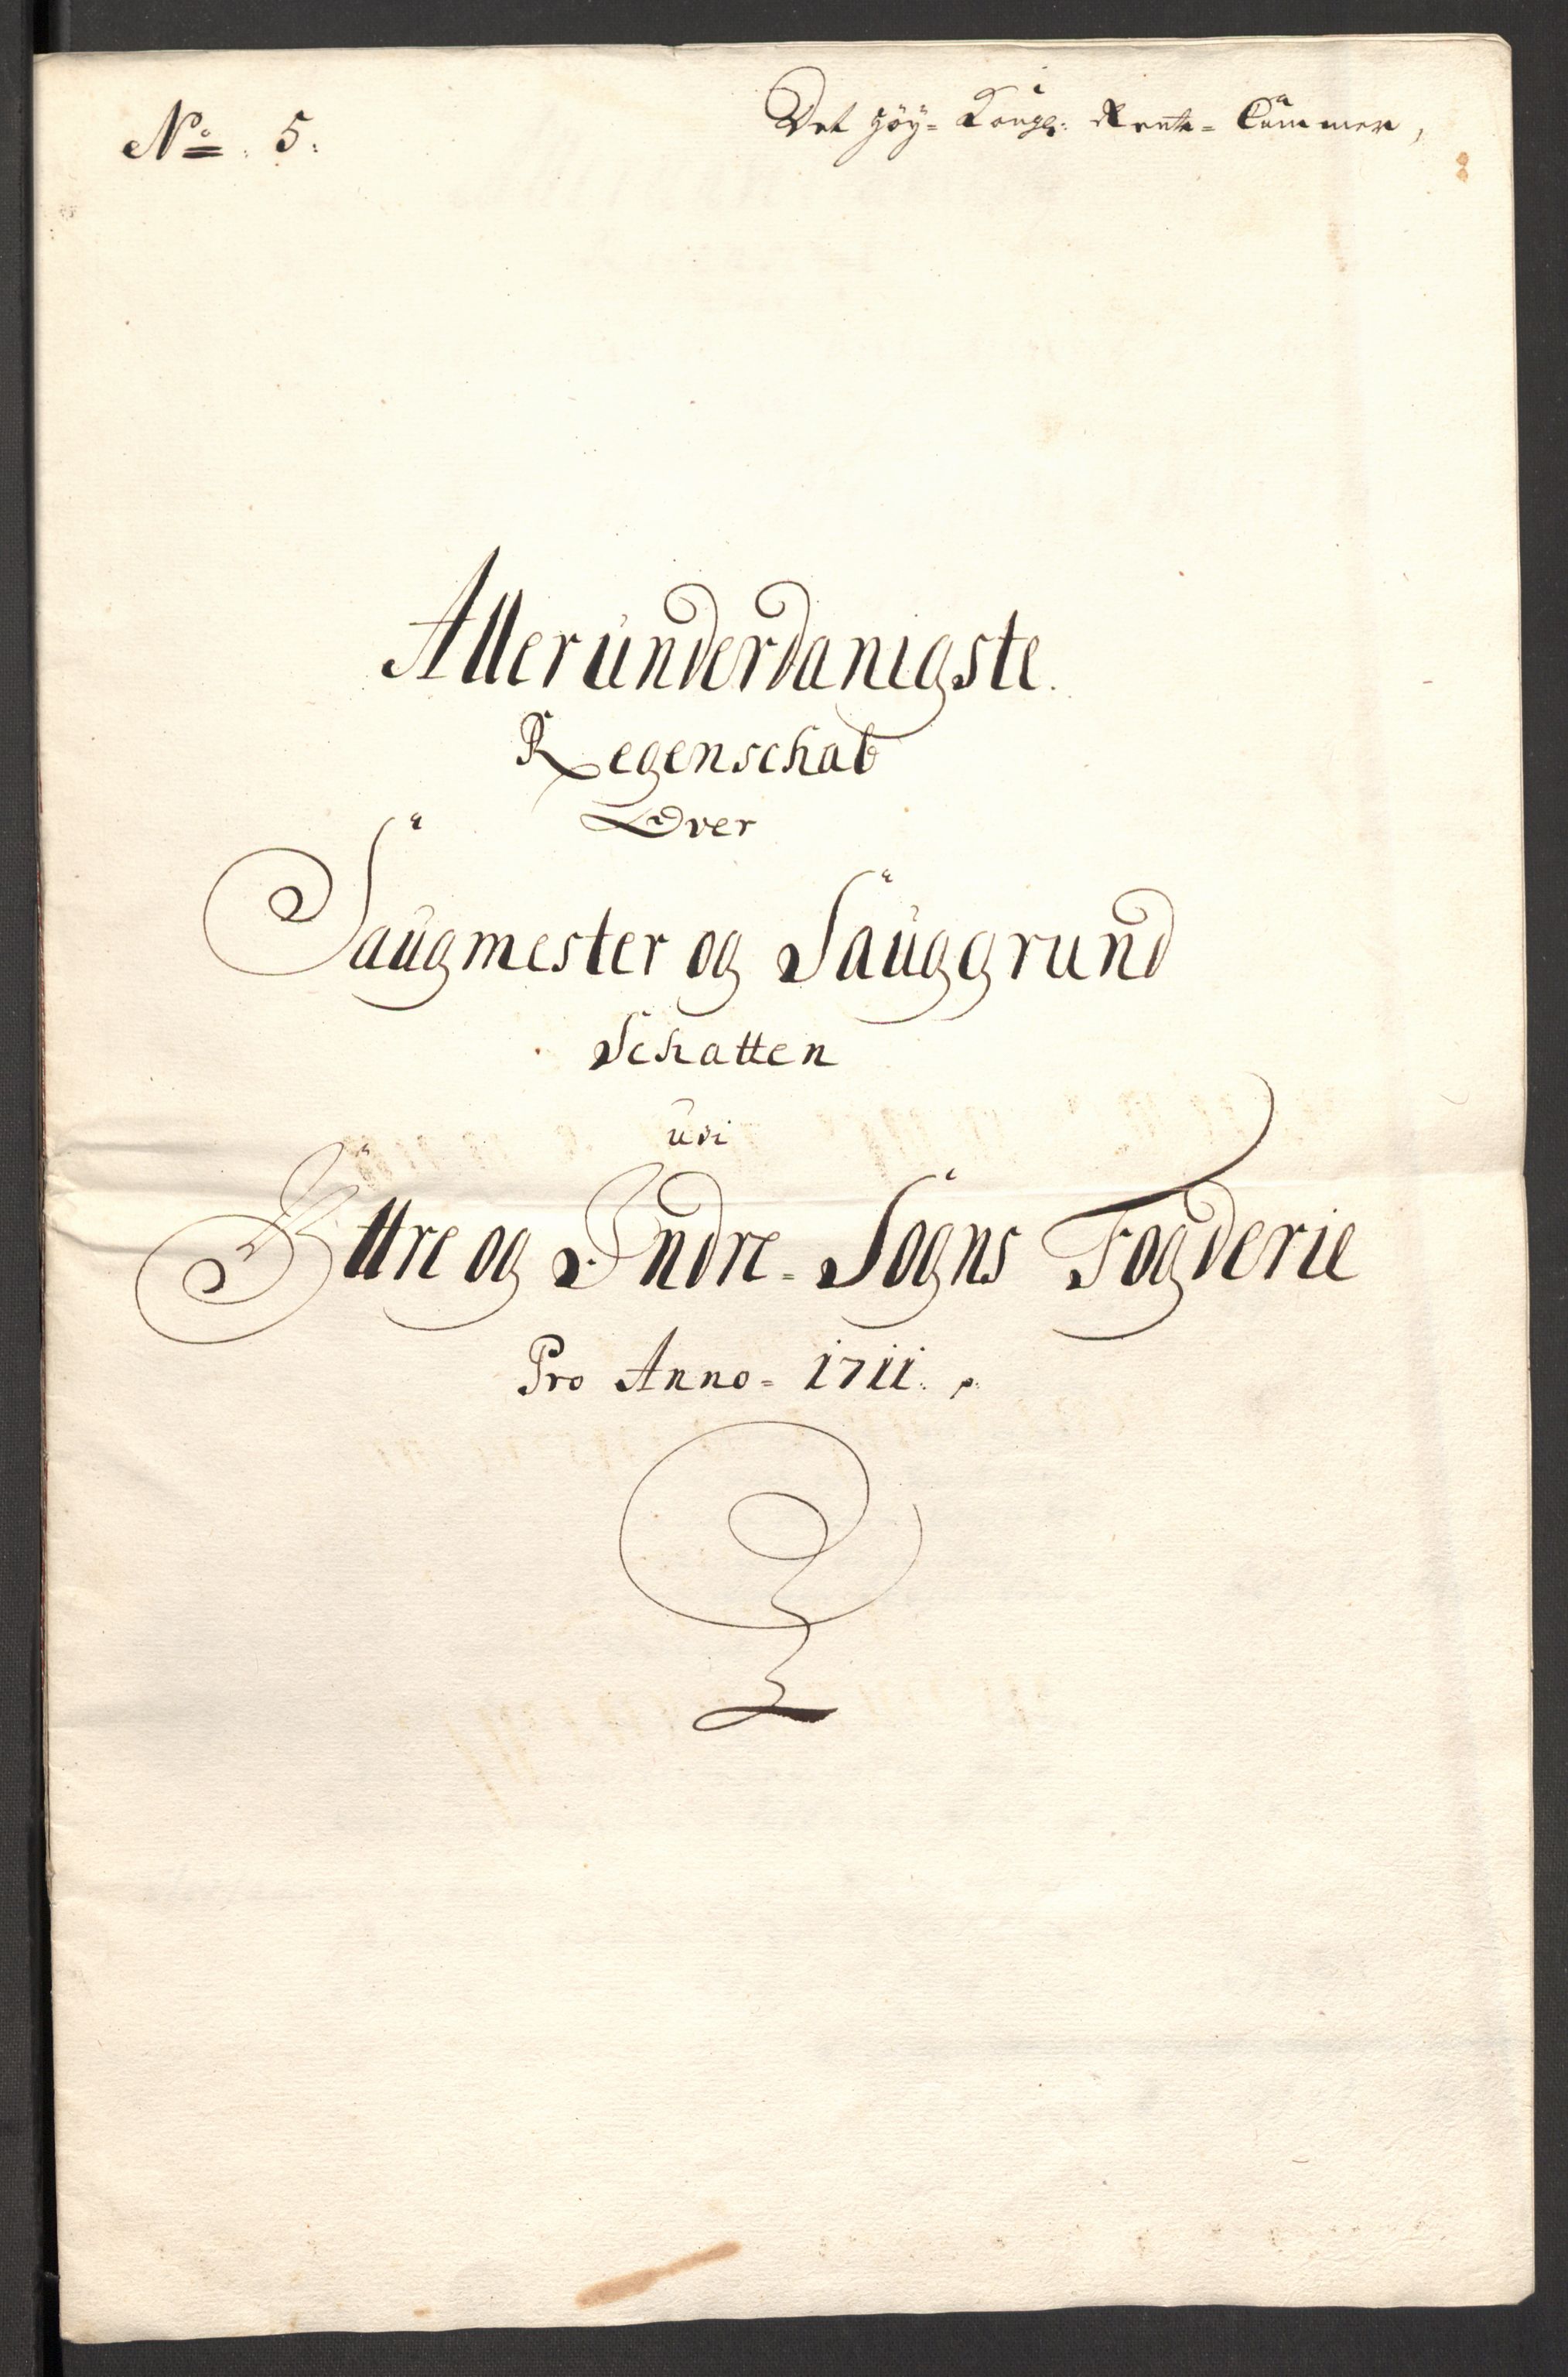 No. 5.
Det höy- Kongl: Rente-Cammer,
Allerunderdanigste.
Regenschab
Over
Saugmester og Sauggrund
Schatten
udi
Yttre og Indre- Sogns Fogderie
Pro Anno- 1711.